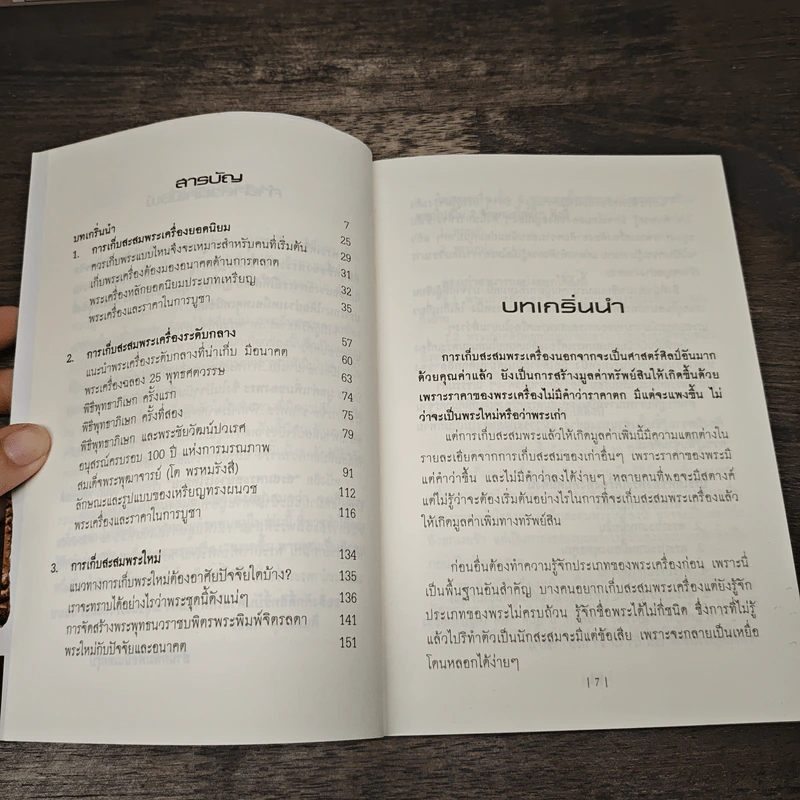 สารบัญ
บทเกริ่นนำ 7
1. การเก็บสะสมพระเครื่องยอดนิยม 25
ควรเก็บพระแบบไหนจึงจะเหมาะสำหรับคนที่เริ่มต้น 29
เก็บพระเครื่องต้องมองอนาคตด้านการตลาด 31
พระเครื่องหลักยอดนิยมประเภทเหรียญ 32
พระเครื่องและราคาในการบูชา 35
2. การเก็บสะสมพระเครื่องระดับกลาง 57
แนะนำพระเครื่องระดับกลางที่น่าเก็บ มีอนาคต 60
พระเครื่องฉลอง 25 พุทธศตวรรษ 63
พิธีพุทธาภิเษก ครั้งแรก 74
พิธีพุทธาภิเษก ครั้งที่สอง 75
พิธีพุทธาภิเษก และพระชัยวัฒน์ปวเรศ 79
อนุสรณ์ครบรอบ 100 ปี แห่งการมรณภาพ
สมเด็จพระพุฒาจารย์ (โต พรหมรังสี) 91
ลักษณะและรูปแบบของเหรียญทรงผนวช 112
พระเครื่องและราคาในการบูชา 116
3. การเก็บสะสมพระใหม่ 134
แนวทางการเก็บพระใหม่ต้องอาศัยปัจจัยใดบ้าง? 135
เราจะทราบได้อย่างไรว่าพระชุดนี้ดังแน่ๆ 136
การจัดสร้างพระพุทธนวราชบพิตรพระพิมพ์จิตรลดา 141
พระใหม่กับปัจจัยและอนาคต 151
บทเกริ่นนำ
การเก็บสะสมพระเครื่องนอกจากจะเป็นศาสตร์ศิลป์อันมาก
ด้วยคุณค่าแล้ว ยังเป็นการสร้างมูลค่าทรัพย์สินให้เกิดขึ้นด้วย
เพราะราคาของพระเครื่องไม่มีคำว่าราคาตก มีแต่จะแพงขึ้น ไม่
ว่าจะเป็นพระใหม่หรือว่าพระเก่า
แต่การเก็บสะสมพระแล้วให้เกิดมูลค่าเพิ่มนี้มีความแตกต่างใน
รายละเอียดจากการเก็บสะสมของเก่าอื่นๆ เพราะราคาของพระมี
แต่คำว่าขึ้น และไม่มีคำว่าลงได้ง่ายๆ หลายคนที่พอจะมีสตางค์
แต่ไม่รู้ว่าจะต้องเริ่มต้นอย่างไรในการที่จะเก็บสะสมพระเครื่องแล้ว
ให้เกิดมูลค่าเพิ่มทางทรัพย์สิน
ก่อนอื่นต้องทำความรู้จักประเภทของพระเครื่องก่อน เพราะนี่
เป็นพื้นฐานอันสำคัญ บางคนอยากเก็บสะสมพระเครื่องแต่ยังรู้จัก
ประเภทของพระไม่ครบถ้วน รู้จักชื่อพระได้ไม่กี่ชนิด ซึ่งการที่ไม่รู้
แล้วไปริทำตัวเป็นนักสะสมจะมีแต่ข้อเสีย เพราะจะกลายเป็นเหยื่อ
โดนหลอกได้ง่ายๆ
| 7 |